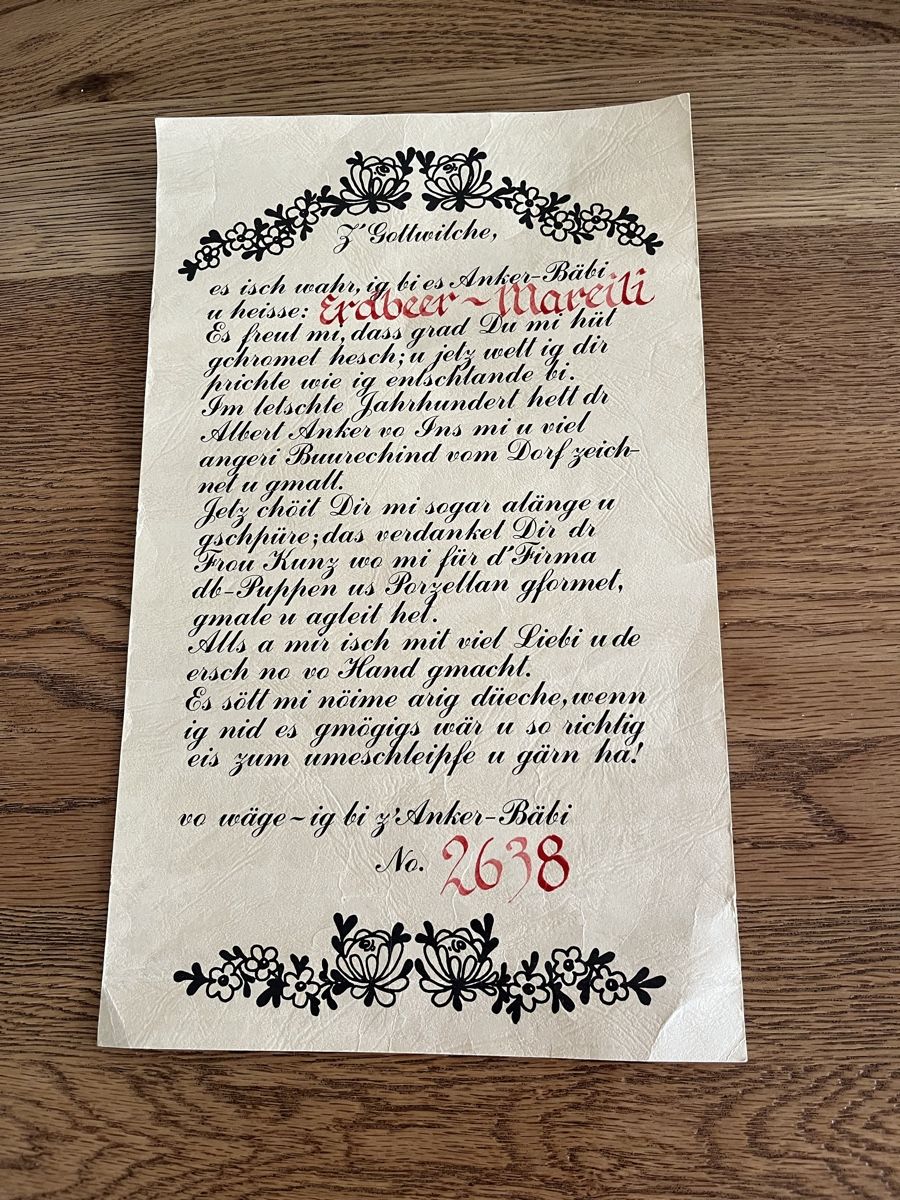 Z'Gottwilche,
es isch wahr, ig bi es Anker-Bäbi
u heisse: Erdbeer~Mareili
Es freut mi, dass grad Du mi hüt
gchromet hesch; u jetz wett ig dir
prichte wie ig entschtande bi.
Im letschte Jahrhundert hett dr
Albert Anker vo Ins mi u viel
angeri Buurechind vom Dorf zeich-
net u gmalt.
Jetz chöit Dir mi sogar alänge u
gschpüre; das verdanket Dir dr
Frou Kunz wo mi für d'Firma
db-Puppen us Porzellan gformet,
gmale u agleit het.
Alls a mir isch mit viel Liebi u de
ersch no vo Hand gmacht.
Es sött mi nöime arig düeche, wenn
ig nid es gmögigs wär u so richtig
eis zum umeschleipfe u gärn ha!
vo wäge~ig bi z'Anker-Bäbi
No. 2638